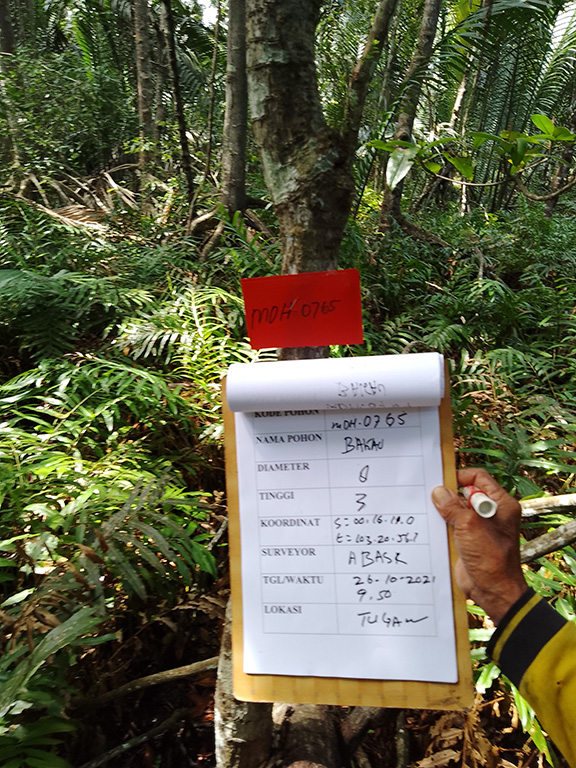 MDH-0765
BAKAU
KODE POHON MDH-0765
NAMA POHON BAKAU
DIAMETER
TINGGI 3
KOORDINAT S=00.16.19.0
E=103.20.56.1
SURVEYOR ABASR
TGL/WAKTU 26-10-2021
9.50
LOKASI